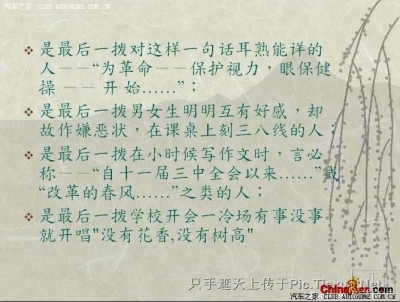 汽车之家
CLUB.AUTOHOME.COM.CN
是最后一拨对这样一句话耳熟能详的
人——“为革命——保护视力，眼保健
操——开始……”；
是最后一拨男女生明明互有好感，却
故作嫌恶状，在课桌上刻三八线的人；
是最后一拨在小时候写作文时，言必
称——“自十一届三中全会以来……”或
“改革的春风……”之类的人；
是最后一拨学校开会一冷场有事没事
就开唱"没有花香,没有树高"
只手遮天上传于Pic.
汽车之家 CLUB.AUTOHOME.COM.CN